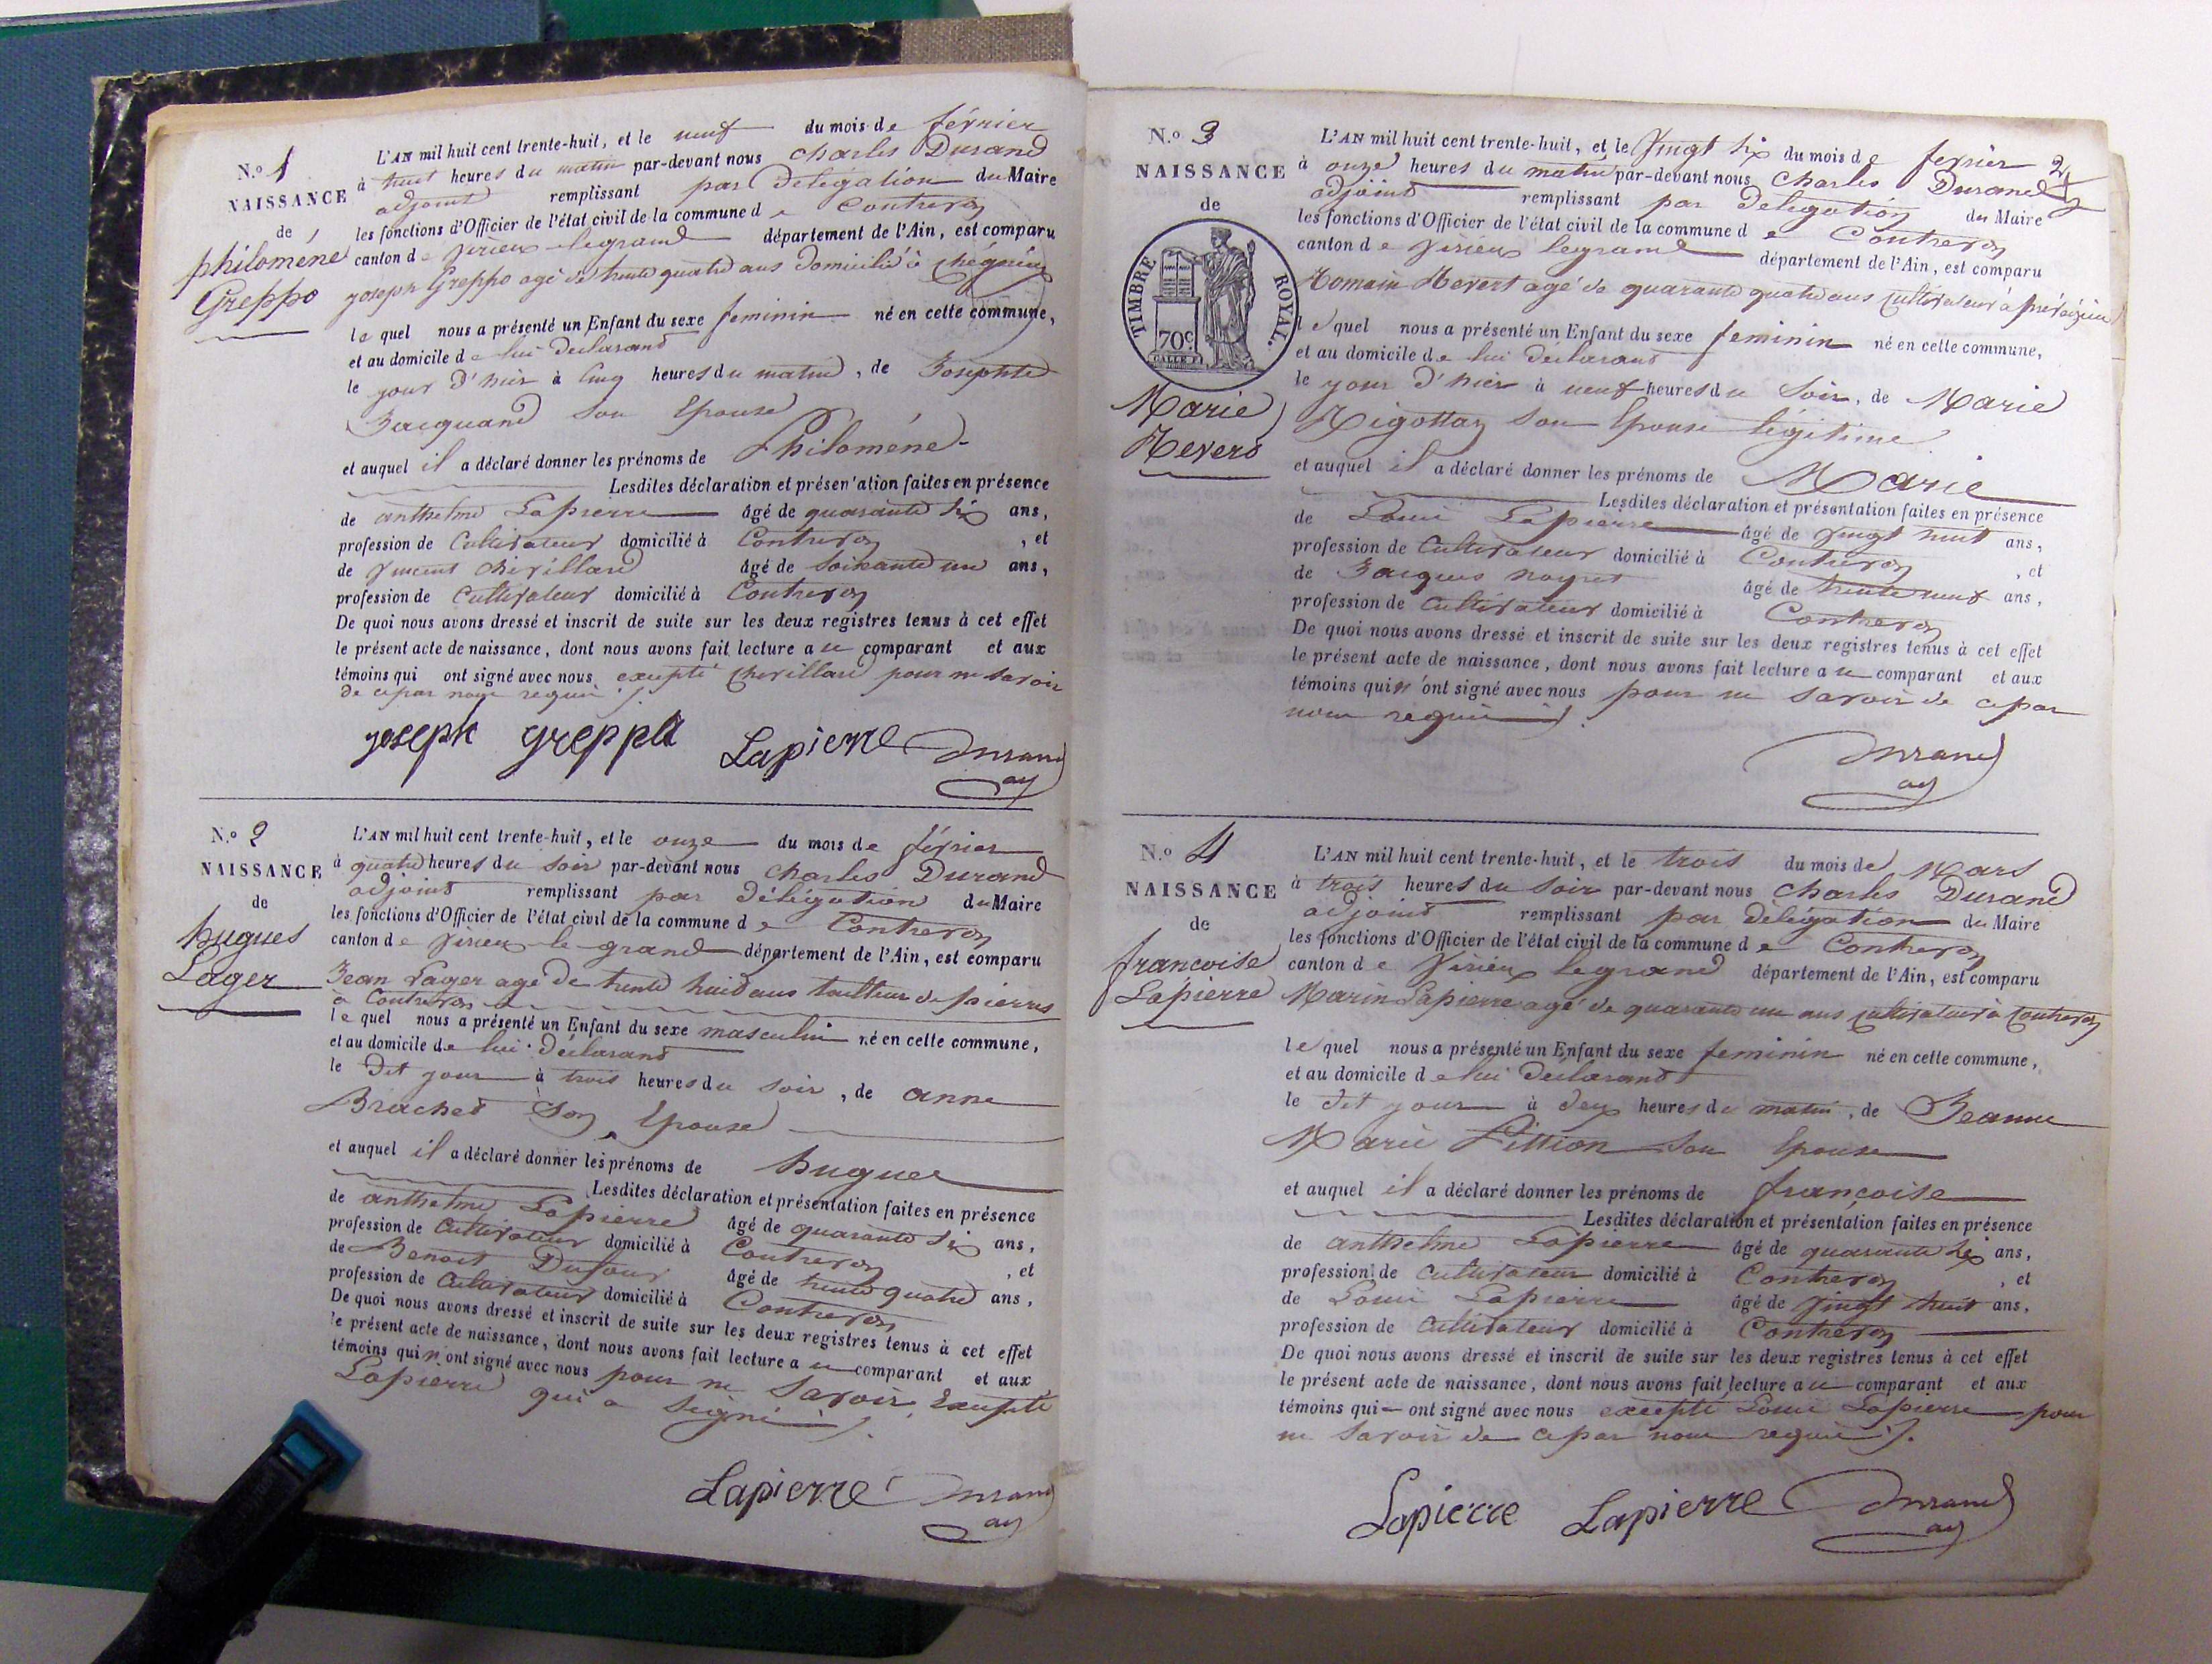 N.º 1
NAISSANCE
de
philoméne
Greppo
L'AN mil huit cent trente-huit, et le neuf du mois de février
à huit heures du matin par-devant nous charles Durand
adjoint remplissant par Délégation du Maire
les fonctions d'Officier de l'état civil de la commune de Contrevoz
canton de Virieux legrand département de l'Ain, est comparu
joseph Greppo agé de trente quatre ans Domicilié à
le quel nous a présenté un Enfant du sexe feminin né en cette commune,
et au domicile de lui Déclarant
le jour D'hier à Cinq heures du matin, de Josephte
Jacquand son Epouse
et auquel il a déclaré donner les prénoms de Philoméne
Lesdites déclaration et présen'ation faites en présence
de anthelme Lapierre âgé de quarante six ans,
profession de Cultivateur domicilié à Contrevoz, et
de Vincent Chevillard âgé de Soixante un ans,
profession de Cultivateur domicilié à Contrevoz
De quoi nous avons dressé et inscrit de suite sur les deux registres tenus à cet effet
le présent acte de naissance, dont nous avons fait lecture au comparant et aux
témoins qui ont signé avec nous excepté Chevillard pour ne savoir
de ce par nous requis /.
joseph greppo Lapierre Durand
adj
N.º 2
NAISSANCE
de
hugues
Lager
L'AN mil huit cent trente-huit, et le onze du mois de février
à quatre heures du soir par-devant nous charles Durand
adjoint remplissant par Délégation du Maire
les fonctions d'Officier de l'état civil de la commune de Contrevoz
canton de Virieux le grand département de l'Ain, est comparu
Jean Lager agé de trente huit ans tailleur de pierres
à Contrevoz
le quel nous a présenté un Enfant du sexe masculin né en cette commune,
et au domicile de lui Déclarant
le Dit jour à trois heures du soir, de anne
Brachet Son Epouse
et auquel il a déclaré donner les prénoms de hugues
Lesdites déclaration et présentation faites en présence
de anthelme Lapierre âgé de quarante six ans,
profession de Cultivateur domicilié à Contrevoz, et
de Benoit Dufour âgé de trente quatre ans,
profession de Cultivateur domicilié à Contrevoz
De quoi nous avons dressé et inscrit de suite sur les deux registres tenus à cet effet
le présent acte de naissance, dont nous avons fait lecture au comparant et aux
témoins qui n'ont signé avec nous pour ne Savoir, Excepté
Lapierre qui a signé /.
Lapierre Durand
adj
N.º 3
NAISSANCE
de
TIMBRE ROYAL.
70c
Marie
Revers
L'AN mil huit cent trente-huit, et le Vingt six du mois de fevrier
à onze heures du matin par-devant nous Charles Durand
adjoint remplissant par Délégation du Maire
les fonctions d'Officier de l'état civil de la commune de Contrevoz
canton de Virieux legrand département de l'Ain, est comparu
Romain Revert agé de quarante quatre ans cultivateur à
le quel nous a présenté un Enfant du sexe feminin né en cette commune,
et au domicile de lui Déclarant
le jour D'hier à neuf heures du Soir, de Marie
Rigottaz son Epouse légitime
et auquel il a déclaré donner les prénoms de Marie
Lesdites déclaration et présentation faites en présence
de Louis Lapierre âgé de Vingt huit ans,
profession de Cultivateur domicilié à Contrevoz, et
de Jacques noyret âgé de trente neuf ans,
profession de Cultivateur domicilié à Contrevoz
De quoi nous avons dressé et inscrit de suite sur les deux registres tenus à cet effet
le présent acte de naissance, dont nous avons fait lecture au comparant et aux
témoins qui n'ont signé avec nous pour ne savoir de ce par
nous requis /.
Durand
adj
N.º 4
NAISSANCE
de
francoise
Lapierre
L'AN mil huit cent trente-huit, et le trois du mois de Mars
à trois heures du soir par-devant nous Charles Durand
adjoint remplissant par Délégation du Maire
les fonctions d'Officier de l'état civil de la commune de Contrevoz
canton de Virieux legrand département de l'Ain, est comparu
Marin Lapierre agé de quarante un ans cultivateur à Contrevoz
le quel nous a présenté un Enfant du sexe feminin né en cette commune,
et au domicile de lui Déclarant
le dit jour à deux heures du matin, de Jeanne
Marie Pittion son Epouse
et auquel il a déclaré donner les prénoms de françoise
Lesdites déclaration et présentation faites en présence
de anthelme Lapierre âgé de quarante six ans,
profession de Cultivateur domicilié à Contrevoz, et
de Louis Lapierre âgé de Vingt huit ans,
profession de Cultivateur domicilié à Contrevoz
De quoi nous avons dressé et inscrit de suite sur les deux registres tenus à cet effet
le présent acte de naissance, dont nous avons fait lecture au comparant et aux
témoins qui ont signé avec nous excepté Louis Lapierre pour
ne Savoir de ce par nous requis /.
Lapierre Lapierre Durand
adj